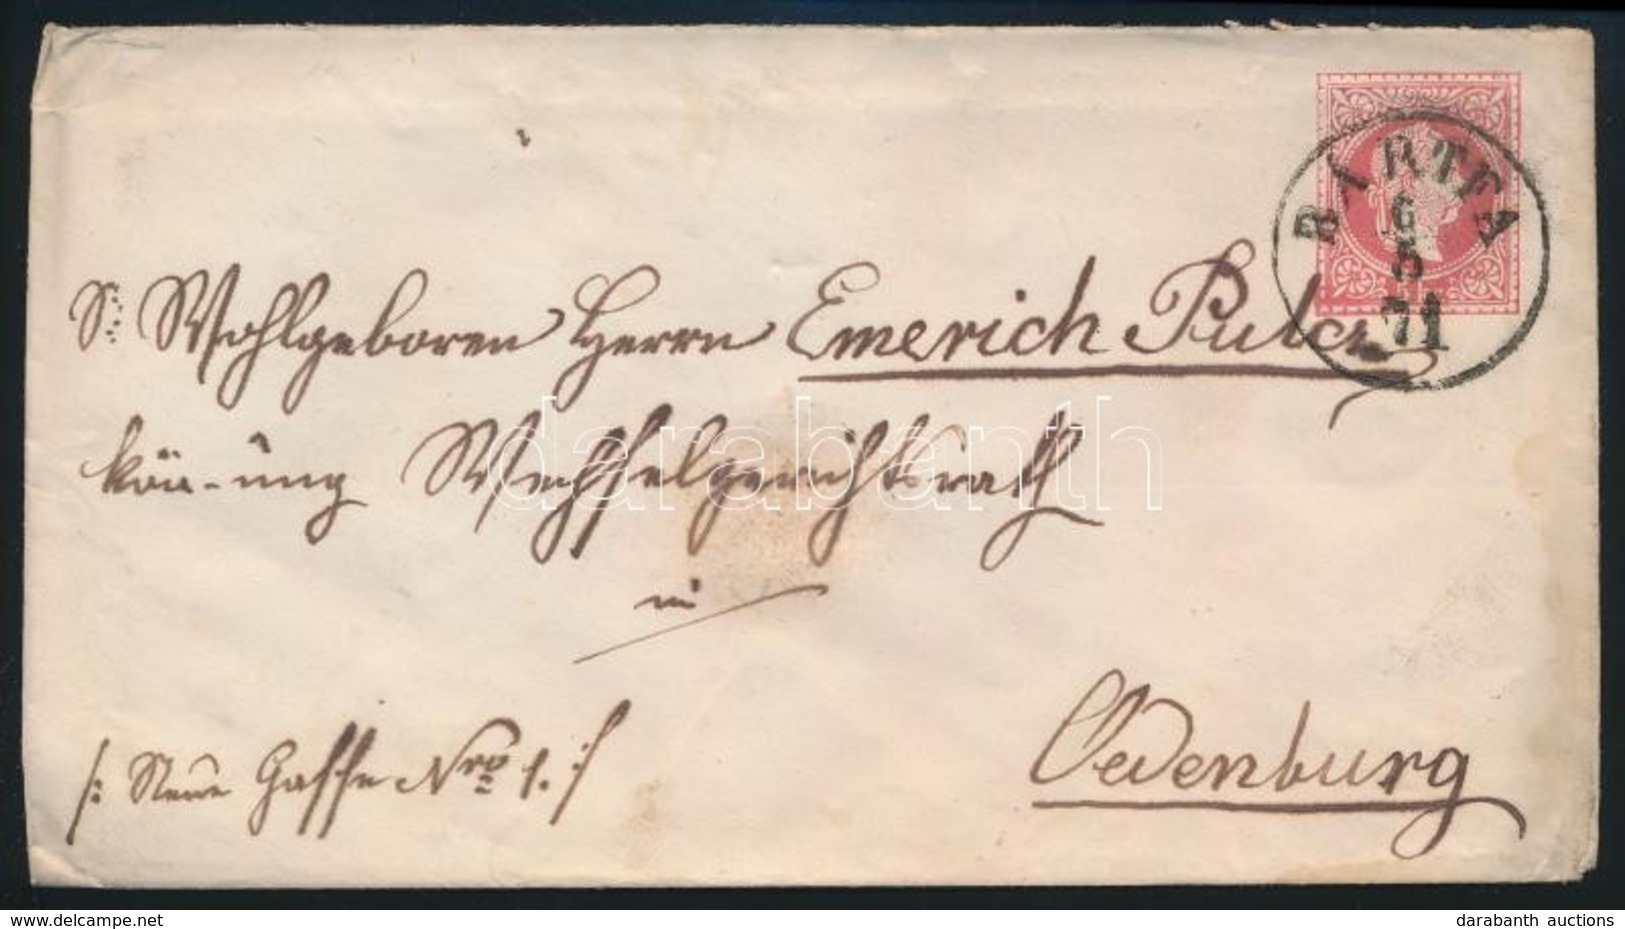 BARTFA
6
5
71
Sr Wohlgeboren Herrn Emerich Pulcz
kön. ung Wechselgerichtsrath
in
Oedenburg
/: Neue Gasse Nro 1. :/
darabanth
darabanth auctions